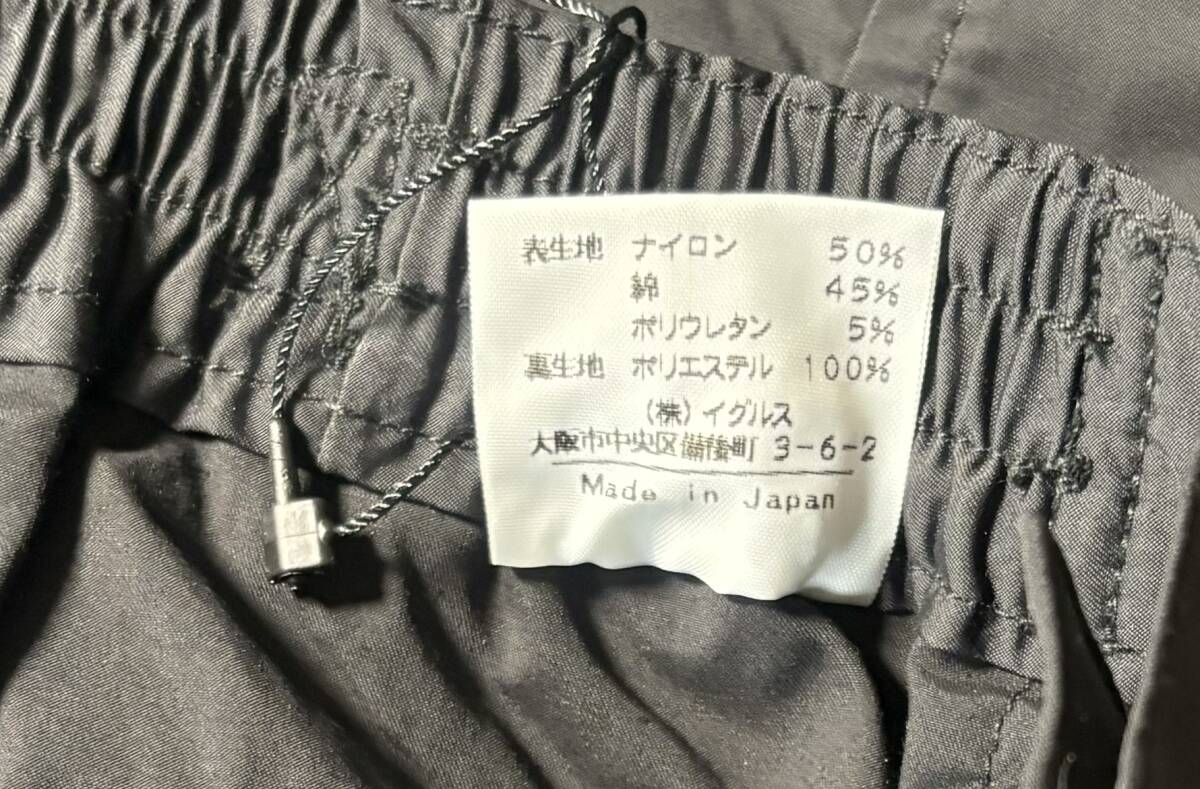 表生地 ナイロン 50%
綿 45%
ポリウレタン 5%
裏生地 ポリエステル 100%
(株)イグルス
大阪市中央区備後町 3-6-2
Made in Japan